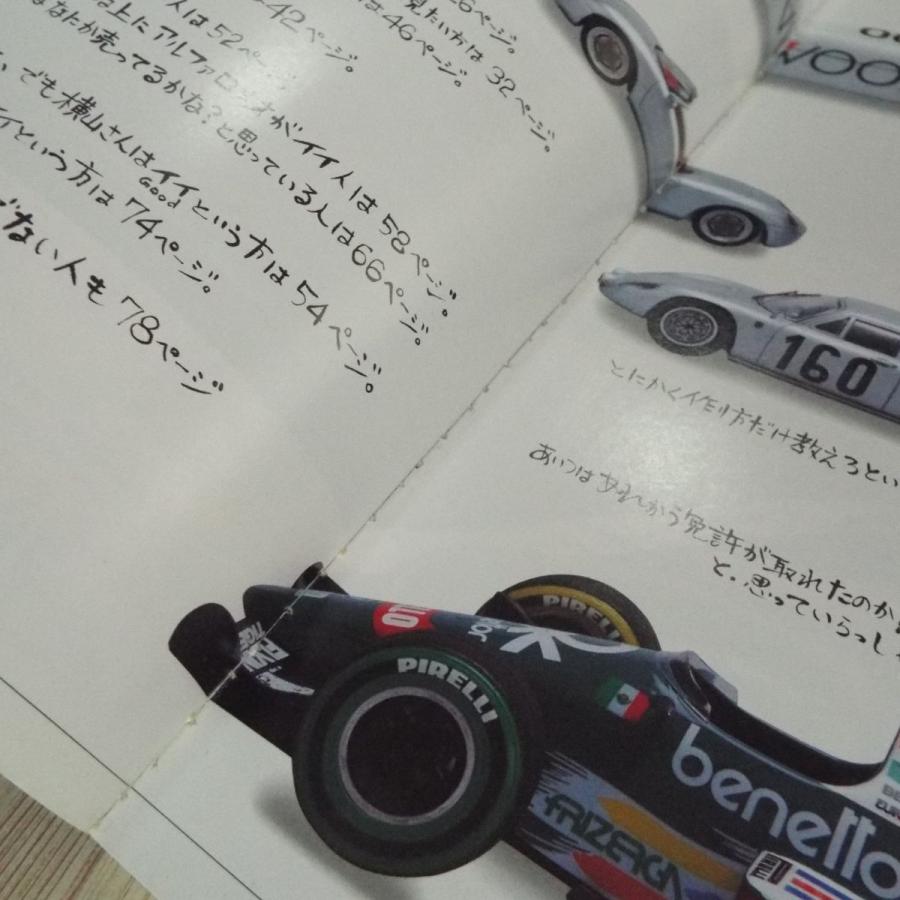 26ページ。
見たい方は 32ページ。
は46ページ。
42ページ。
人は52ページ。
は上にアルファロメオがイイ人は58ページ。
なたか売ってるかな?と思っている人は66ページ。
でも横山さんはイイという方は54ページ。
GOOD
イという方は74ページ。
ない人も78ページ
WOO
160
とにかく作り方だけ教えろとい
あいつは
免許が取れたのか
と、思っていらっし
PIRELLI
PIRELLI
TIGER
benetto
FRIZERGA